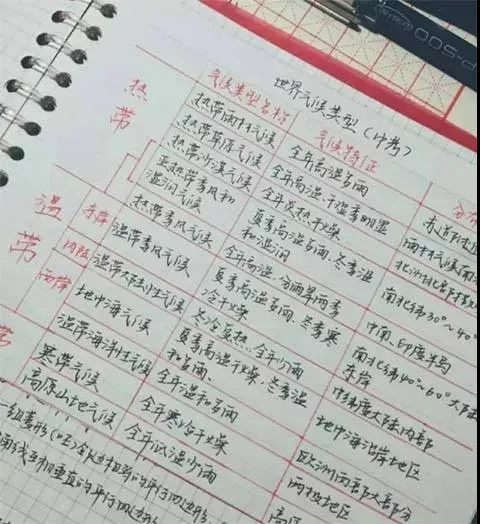 世界气候类型（中考）
气候类型名称 气候特征 分布
热带
热带雨林气候 全年高温多雨
热带草原气候 全年高温、干湿季明显 雨林气候南
热带沙漠气候 全年炎热干燥
亚热带季风和湿润气候 夏季高温多雨、冬季温和湿润 南北纬30°~40°
热带季风气候 全年高温、分雨旱两季 中南、印度半岛
温带
东岸 温带季风气候 夏季高温多雨、冬季寒冷干燥 南北纬40°~60°大陆东岸
内陆 温带大陆性气候 冬冷夏热、全年少雨 中纬度大陆内部
西岸 地中海气候 夏季高温干燥，冬季温和多雨、 地中海沿岸地区
温带海洋性气候 全年温和多雨 欧洲西部大部分
带
寒带气候 全年寒冷干燥 两极地区
高原山地气候 全年低温少雨
一组菱形
角线互相垂直的平行四边形